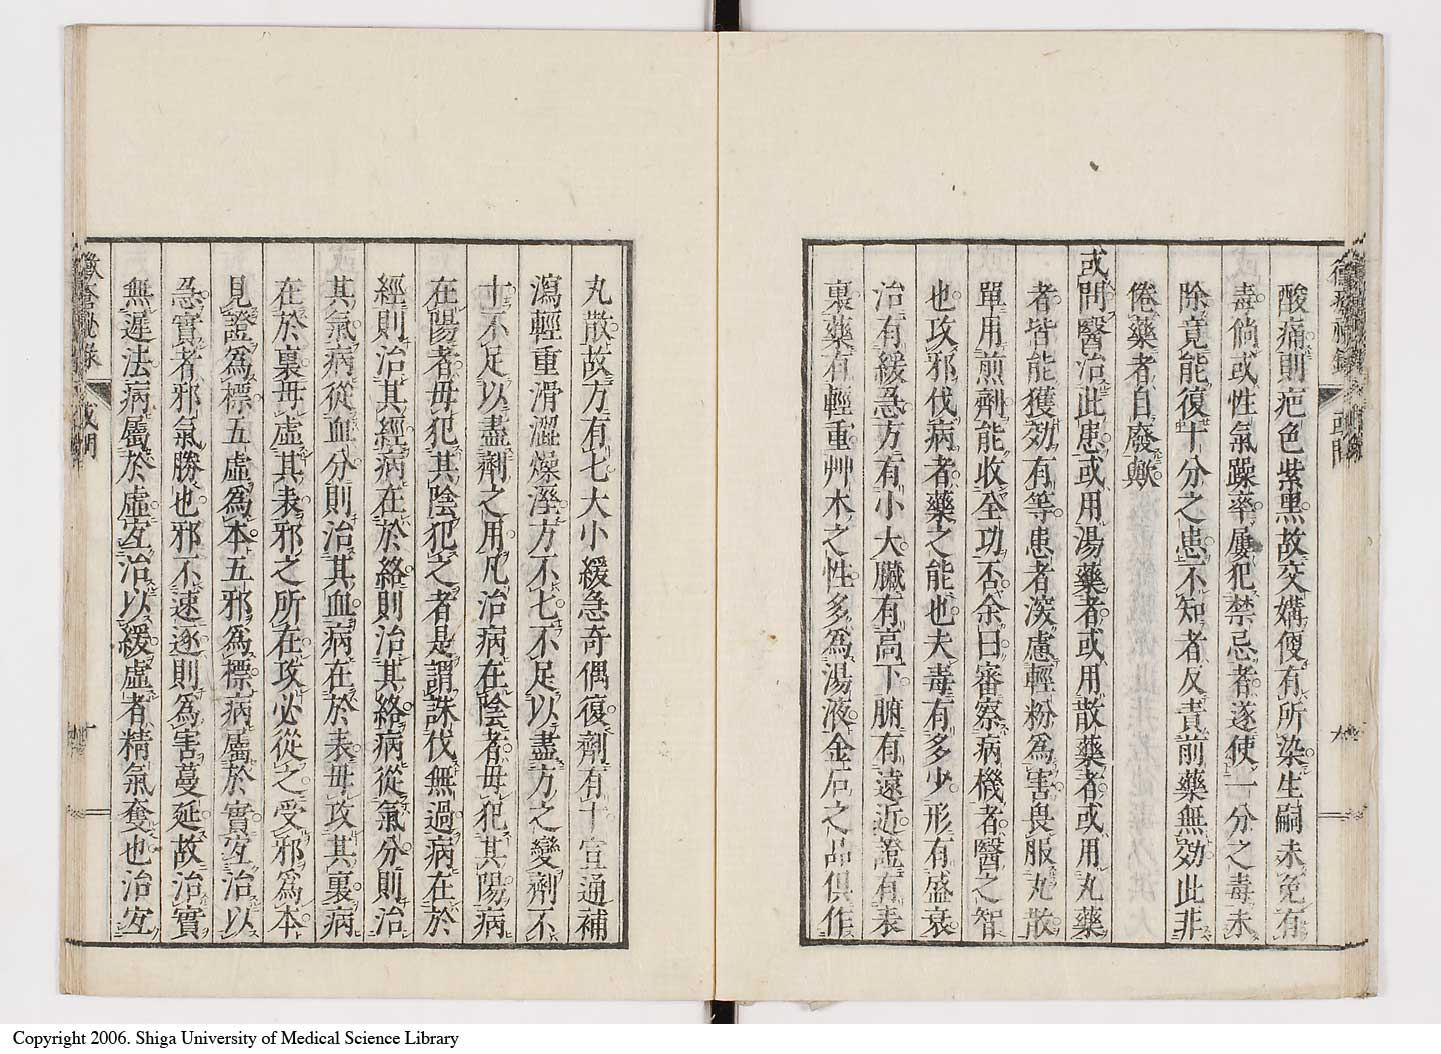 酸痛則疤色紫黑故交媾傻有所染生嗣未免有
毒倘或性氣躁率屢犯禁忌者遂使一分之毒未
除竟能復十分之患不知者反責前藥無効此非
倦藥者自廢歟
或問醫治此患或用湯藥者或用散藥者或用丸藥
者皆能獲効有等患者深慮輕粉為害畏服丸散
單用煎劑能收全功否余曰審察病機者醫之智
也攻邪伐病者藥之能也夫毒有多少形有盛衰
治有緩急方有小大臟有高下腑有遠近證有表
裏藥有輕重艸木之性多為湯液金石之品俱作
丸散故方有七大小緩急奇偶復劑有十宣通補
瀉輕重滑澀燥溼方不七不足以盡方之變劑不
十不足以盡劑之用凡治病在陰者毋犯其陽病
在陽者毋犯其陰犯之者是謂誅伐無過病在於
經則治其經病在於絡則治其絡病從氣分則治
其氣病從血分則治其血病在於表毋攻其裏病
在於裏毋虛其表邪之所在攻必從之受邪為本
見證為標五虛為本五邪為標病屬於實宜治以
急實者邪氣勝也邪不速逐則為害蔓延故治實
無遲法病屬於虛宜治以緩虛者精氣奪也治宜
黴瘡祕錄 或問